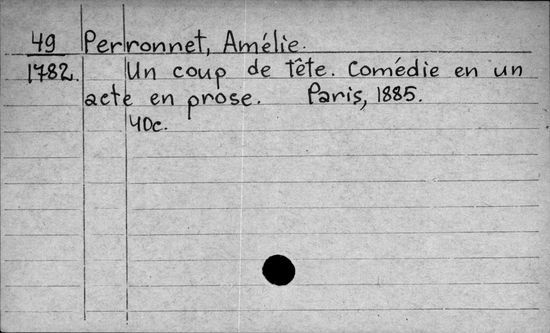 49 Perronnet, Amélie.
1782. Un coup de tête. Comédie en un
acte en prose. Paris, 1885.
40c.